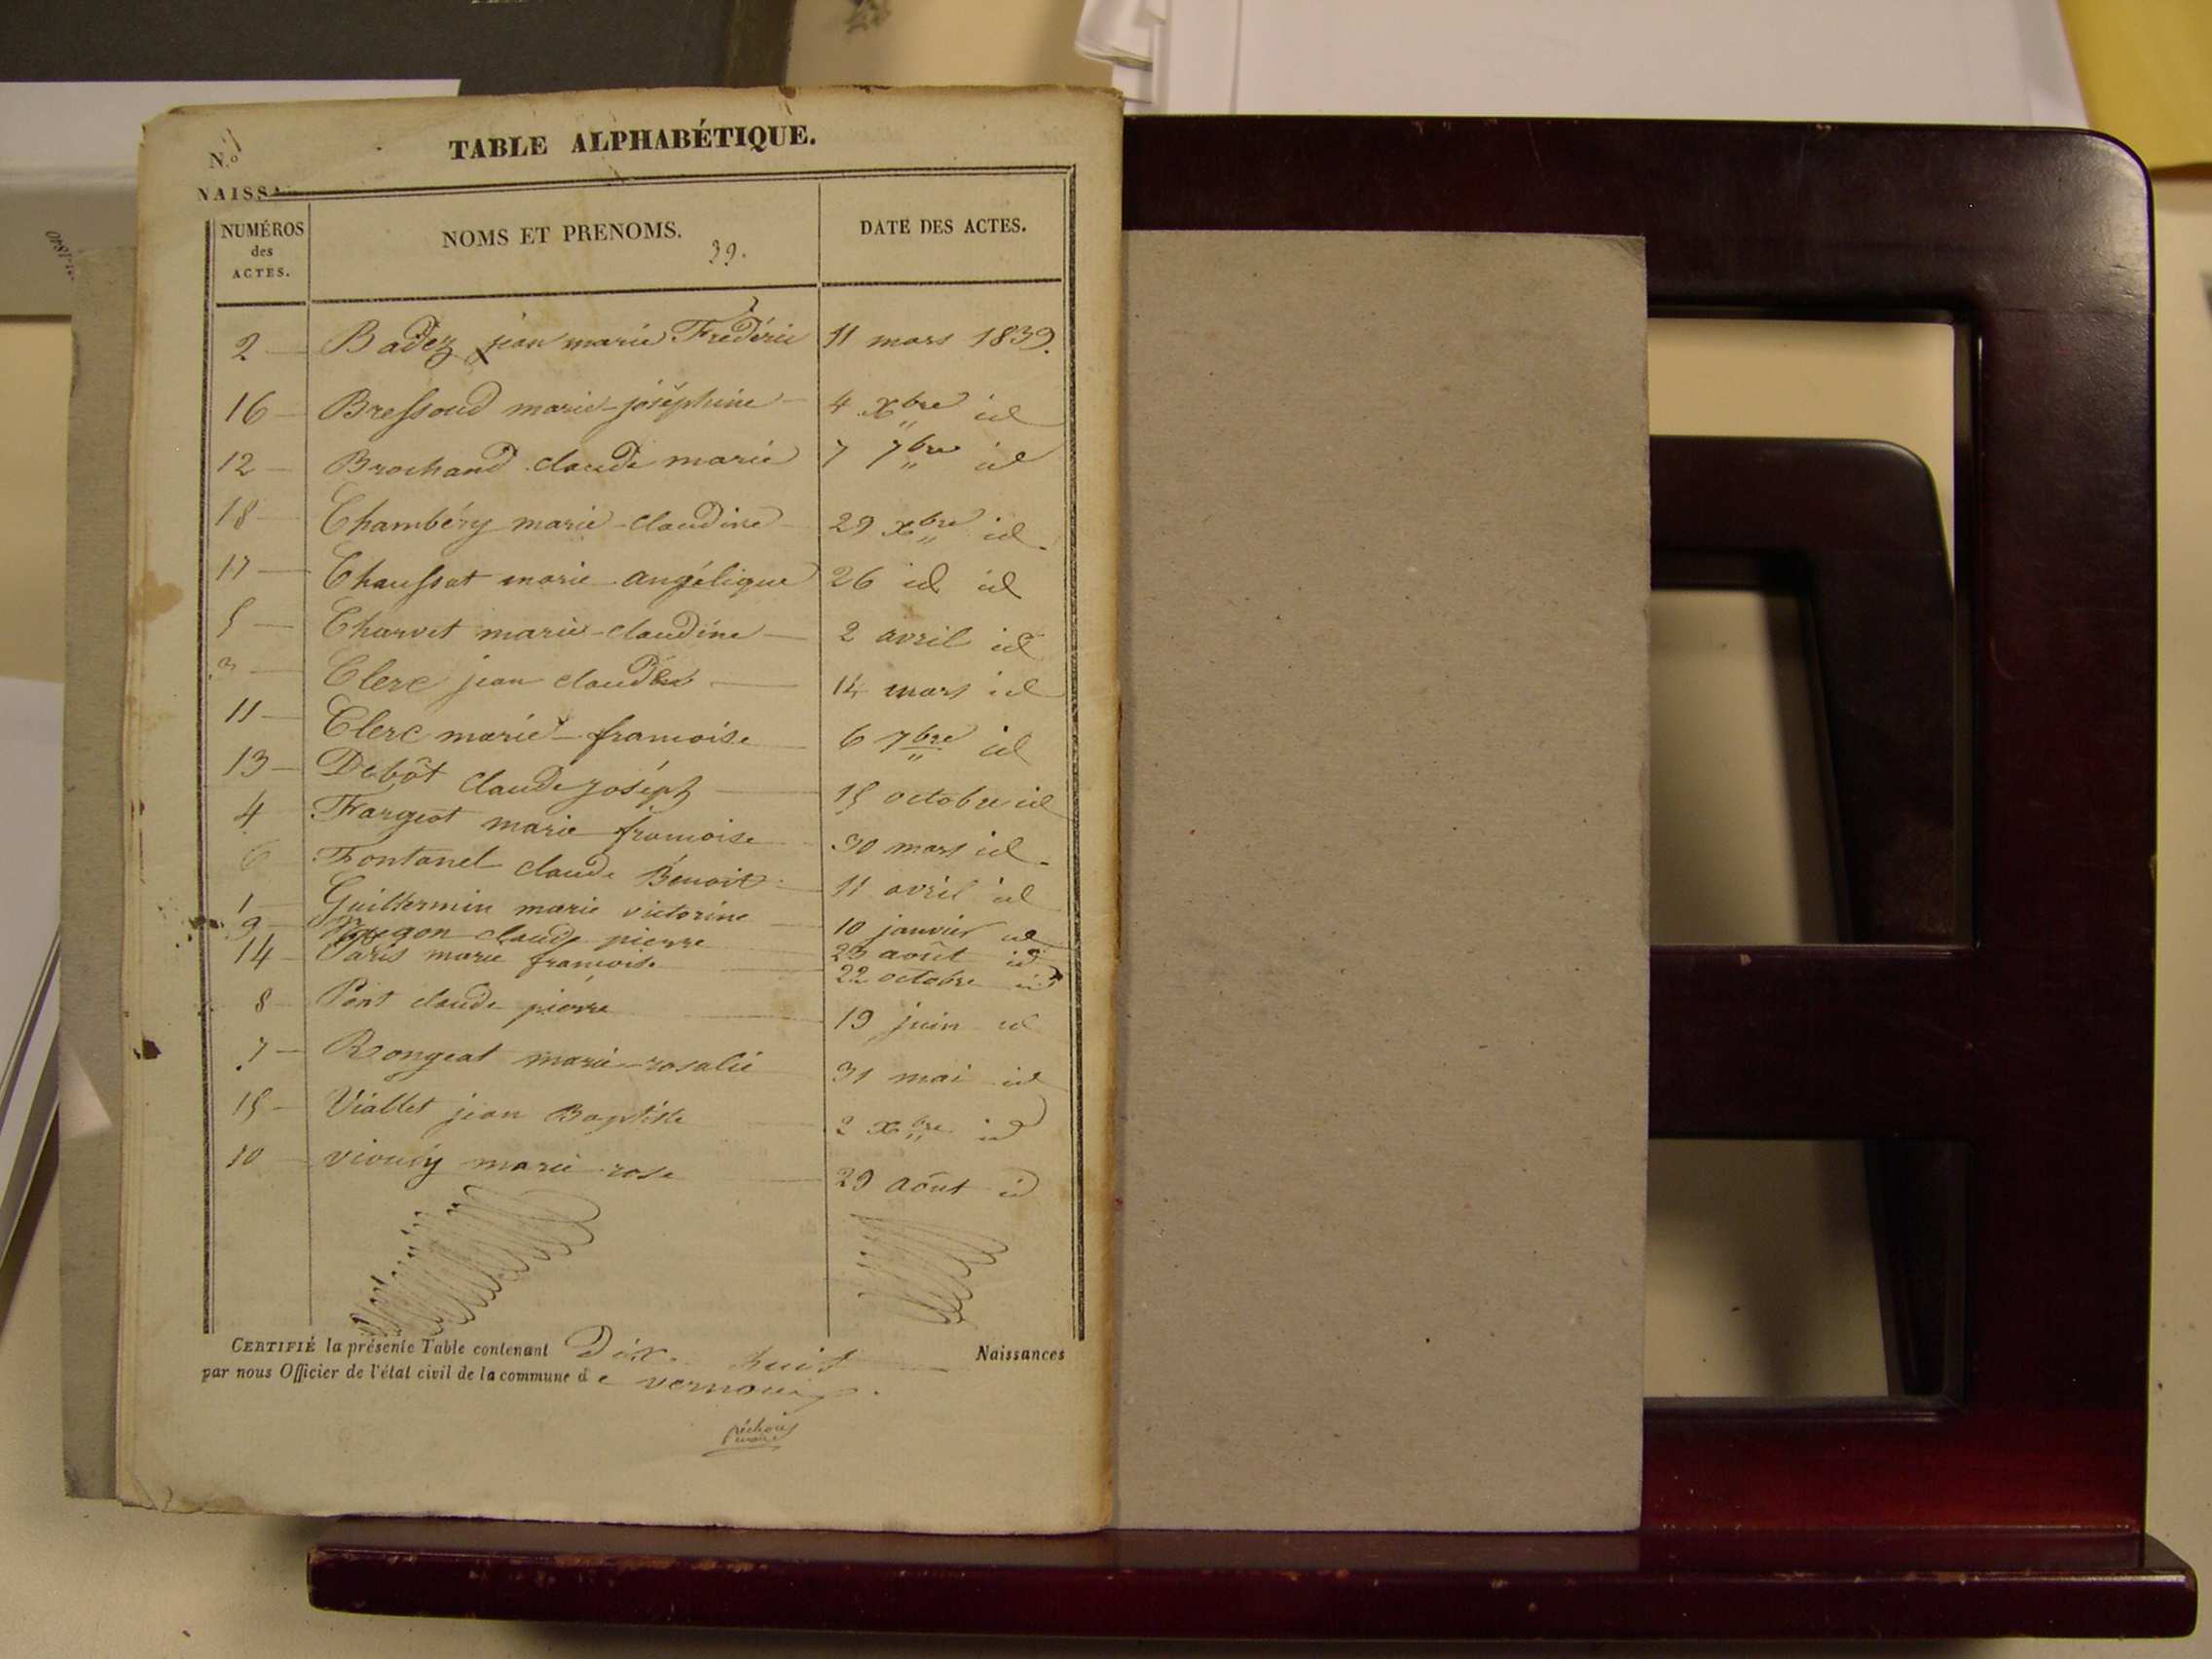 TABLE ALPHABÉTIQUE.
N.o
NAISSA
NUMÉROS des ACTES. NOMS ET PRENOMS. 39. DATE DES ACTES.
2 — Badez jean marie Frédéric 11 mars 1839.
16 — Bressoud marie-joséphine — 4 Xbre id
12 — Brochand claude marie 7 7bre id
18 — Chambéry marie-claudine — 29 xbre id.
17 — Chaussat marie angélique 26 id id
5 — Charvet marie-claudine — 2 avril id
3 — Clerc jean claude — 14 mars id
11 — Clerc marie-francoise — 6 7bre id
13 — Debôt claude joséph — 15 octobre id
4 Fargeot marie francoise 30 mars id.
6 Fontanel claude Benoit — 11 avril id
1 — Guillermin marie victorine — 10 janvier id
9 — claude pierre août id
14 — Paris marie francoise — 22 octobre id
8 — Pont claude pierre — 19 juin id
7 — Rongeat marie-rosalie 31 mai id
15 — Viallet jean Baptiste — 2 xbre id
10 — marie rose — 29 août id
CERTIFIÉ la présente Table contenant Dix huit — Naissances
par nous Officier de l'état civil de la commune de